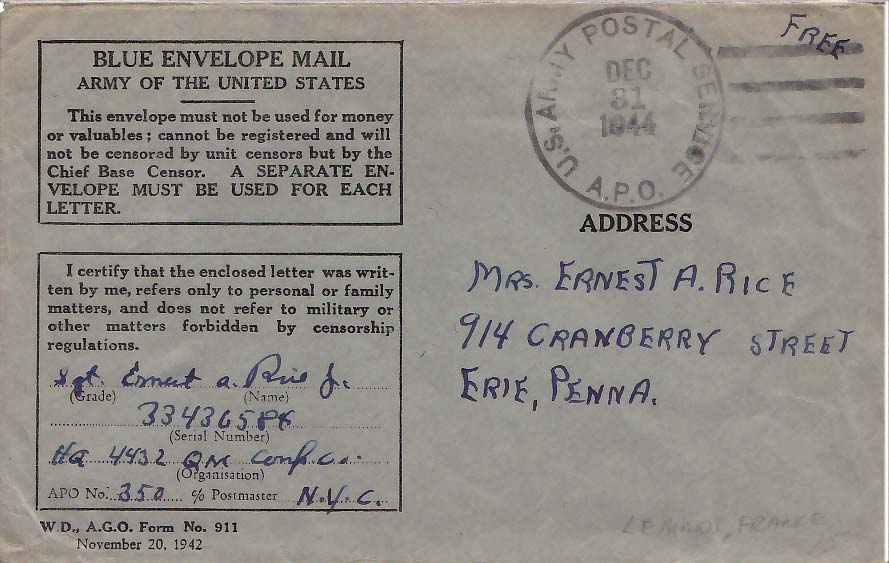 BLUE ENVELOPE MAIL
ARMY OF THE UNITED STATES
This envelope must not be used for money
or valuables; cannot be registered and will
not be censored by unit censors but by the
Chief Base Censor. A SEPARATE EN-
VELOPE MUST BE USED FOR EACH
LETTER.
U.S. ARMY POSTAL SERVICE
A.P.O.
DEC
31
1944
FREE
ADDRESS
MRS. ERNEST A. RICE
914 CRANBERRY STREET
ERIE, PENNA.
I certify that the enclosed letter was writ-
ten by me, refers only to personal or family
matters, and does not refer to military or
other matters forbidden by censorship
regulations.
Sgt. Ernest A. Rice Jr.
(Grade) (Name)
33436584
(Serial Number)
HQ 4432 QM Comp. Co.
(Organisation)
APO No. 350 % Postmaster N.Y.C.
W.D., A.G.O. Form No. 911
November 20, 1942
LEMANS, FRANCE